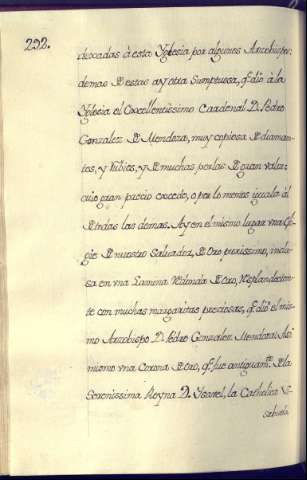 292.
devocadas à esta Yglesia por algunos Arzobispos:
demas D estas ay otra Sumptuosa, q. dió à la
Yglesia el Excellentissimo Cardenal D. Pedro
Gonzalez D Mendoza, muy copiosa D diaman-
tes, y Rubies, y D muchas perlas D gran valor:
cuio gran precio excede, o por lo menos iguala àl
D todas las demas. Ay en el mismo lugar vna Efi-
gie D nuestro Salvador, D Oro purissimo, inclu-
sa en vna Lamina D Oro, resplandecien-
te con muchas margaritas preciosas, q. dió el mis-
mo Arzobispo D. Pedro Gonzalez Mendoza: Assi
mismo vna Corona D Oro, q. fue antiguam.te D la
Serenissima Reyna D. Ysavel, la Catholica